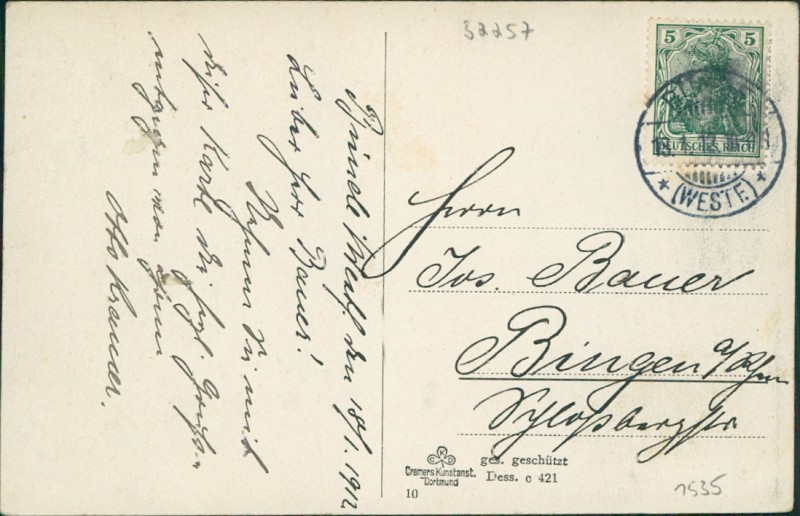 32257
5 5
DEUTSCHES REICH
(WESTF.)
i/Westf. den 18/1. 1912
Lieber Herr Bauer!
Nehmen Sie mit
dieser Karte die hzl. Grüße
entgegen von Ihrem
Otto
Herrn
Jos. Bauer
Bingen a/Rhein
Schloßbergstr
KD
Cramers Kunstanst.
Dortmund
ges. geschützt
Dess. c 421
10
1535